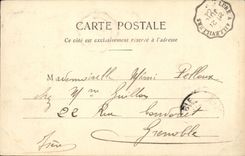 CARTE POSTALE
Ce côté est exclusivement réservé à l'adresse
Mademoiselle Mimi Pelloux
chez Mme Guillot
22 Rue
Grenoble
Isère